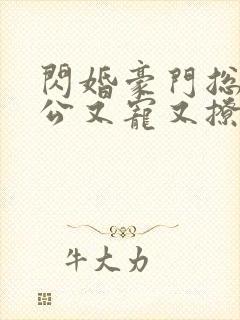 閃婚豪門總
公又寵又撩
牛大力